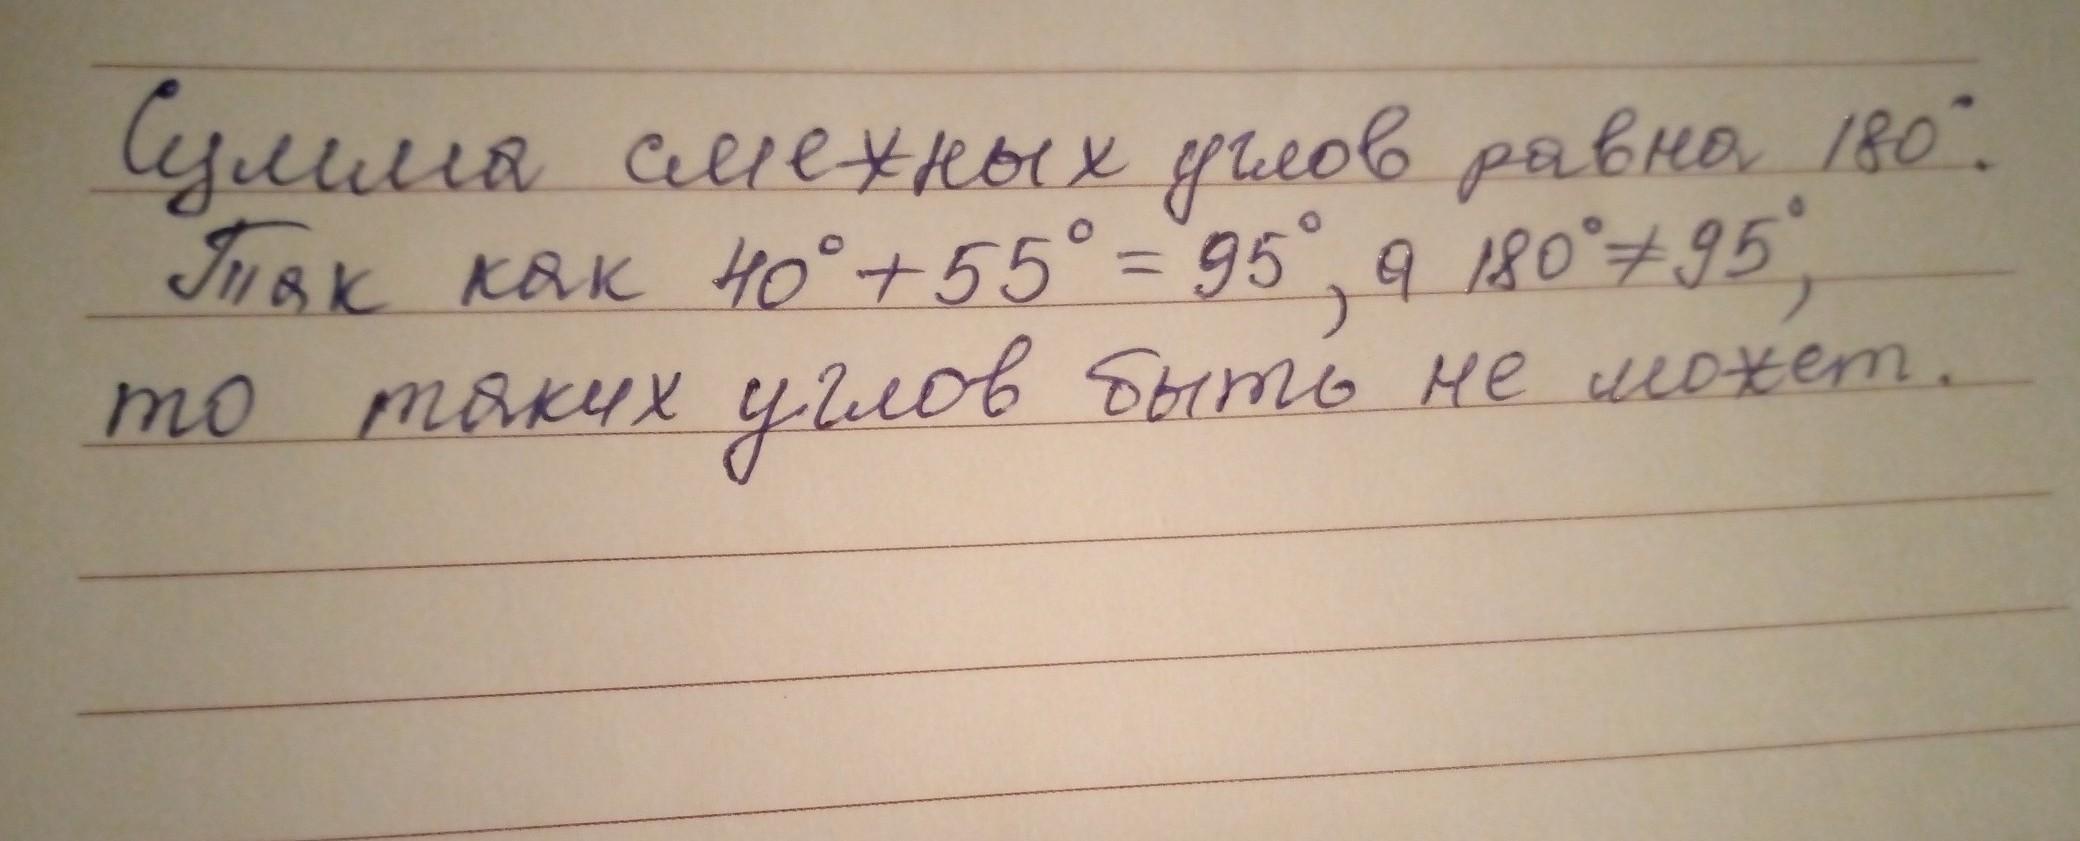 Сумма смежных углов равна 180°.
Так как 40° + 55° = 95°, а 180° ≠ 95°,
то таких углов быть не может.